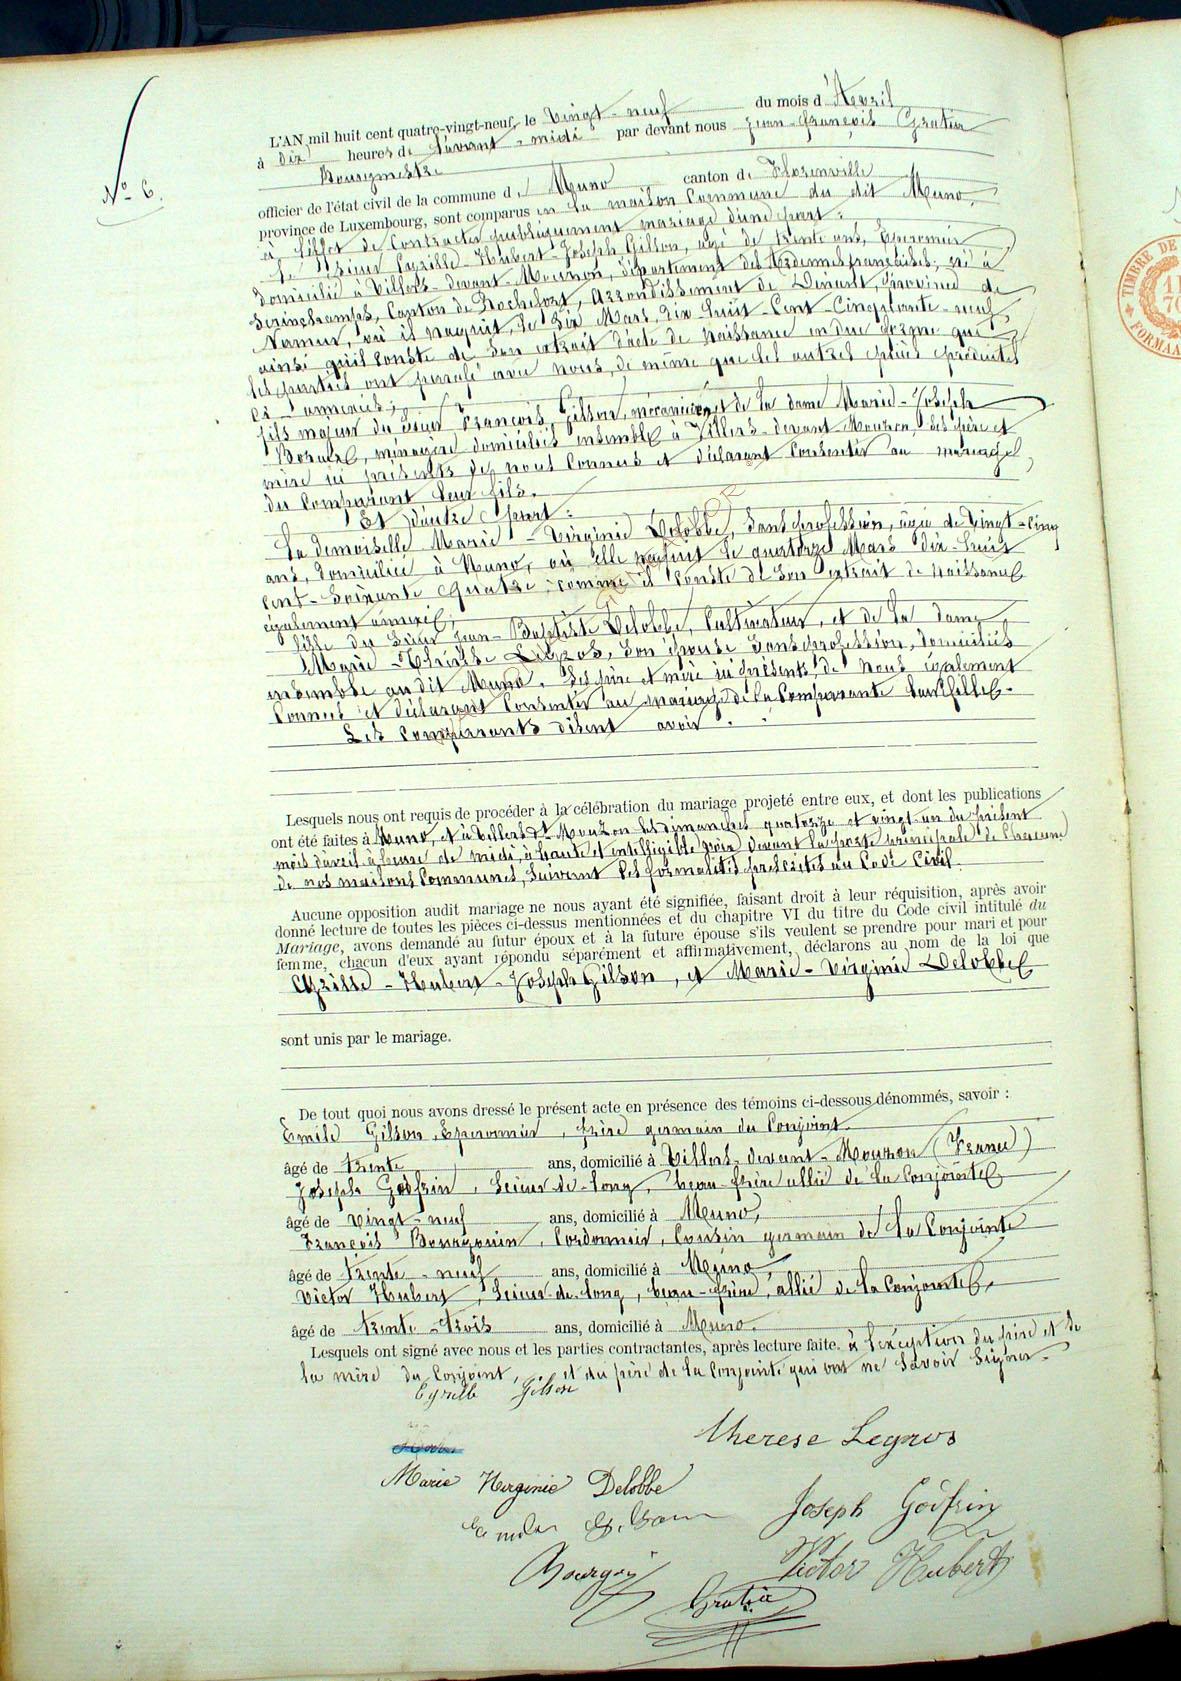 N° 6.
L'AN mil huit cent quatre-vingt-neuf, le Vingt-neuf du mois d'Avril
à dix heures de l'avant-midi par devant nous Jean-françois Gratia
Bourgmestre
officier de l'état civil de la commune de Muno canton de Florenville
province de Luxembourg, sont comparus en la maison Commune du dit Muno,
à l'effet de Contracter publiquement mariage d'une part :
Le Sieur Cyrille-Hubert-Joseph Gilson, agé de trente ans, Eperonnier
domicilié à Villers-devant-Mouzon, département des Ardennes françaises; né à
Serinchamps, Canton de Rochefort, Arrondissement de Dinant, Province de
Namur, où il naquit, le Six Mars Dix-huit-Cent-Cinquante-neuf,
ainsi qu'il Conste de Son extrait d'acte de naissance en due forme que
les parties ont parafé avec nous, de même que les autres pièces produites
ci-annexées;
fils majeur du sieur François Gilson, mécanicien, et de la dame Marie-Joseph
ménagère domiciliés ensemble à Villers-devant-Mouzon, Ses père et
mère ici présents de nous Connus et déclarant Consentir au mariage,
du Comparant leur fils.
Et d'autre part :
La demoiselle Marie-Virginie Delobbe, Sans profession, agée de Vingt-Cinq
ans, domiciliée à Muno, où elle naquit le quatorze Mars dix-huit
cent-Soixante quatre, comme il Conste de Son extrait de naissance
également annexé;
fille du Sieur Jean-Baptiste Delobbe, Cultivateur, et de la dame
Marie-Thérèse Legros, Son épouse Sans profession, domiciliés
ensemble au dit Muno. Ses père et mère ici présents, de Nous également
Connus et déclarant Consentir au mariage de la Comparante leur fille.
Les Comparants disent avoir
Lesquels nous ont requis de procéder à la célébration du mariage projeté entre eux, et dont les publications
ont été faites à Muno, et à Villers dt Mouzon les dimanches quatorze et vingt-un du présent
mois d'avril à heure de midi, à haute et intelligible voix devant la porte principale de Chacune
de nos maisons Communes, Suivant les formalités prescrites au Code Civil.
Aucune opposition audit mariage ne nous ayant été signifiée, faisant droit à leur réquisition, après avoir
donné lecture de toutes les pièces ci-dessus mentionnées et du chapitre VI du titre du Code civil intitulé du
Mariage, avons demandé au futur époux et à la future épouse s'ils veulent se prendre pour mari et pour
femme, chacun d'eux ayant répondu séparément et affirmativement, déclarons au nom de la loi que
Cyrille-Hubert-Joseph Gilson, et Marie-Virginie Delobbe
sont unis par le mariage.
De tout quoi nous avons dressé le présent acte en présence des témoins ci-dessous dénommés, savoir :
Emile Gilson, Eperonnier, frère germain du Conjoint.
âgé de trente ans, domicilié à Villers-devant-Mouzon (France)
Joseph Godfrin, Scieur-de-long, beau-frère allié de la Conjointe
âgé de vingt-neuf ans, domicilié à Muno,
François Bourgouin, Cordonnier, Cousin germain de la Conjointe
âgé de trente-neuf ans, domicilié à Muno,
Victor Hubert, Scieur-de-long, beau-frère, allié de la Conjointe,
âgé de trente-trois ans, domicilié à Muno.
Lesquels ont signé avec nous et les parties contractantes, après lecture faite. à l'exception du père et de
la mère du Conjoint, et du père de la Conjointe qui ont ne Savoir Signer.
Cyrille Gilson
Therese Legros
Marie Virginie Delobbe
Emile Gilson
Joseph Godfrin
Bourgoin
Victor Hubert
Gratia
TIMBRE DE
FORMAA